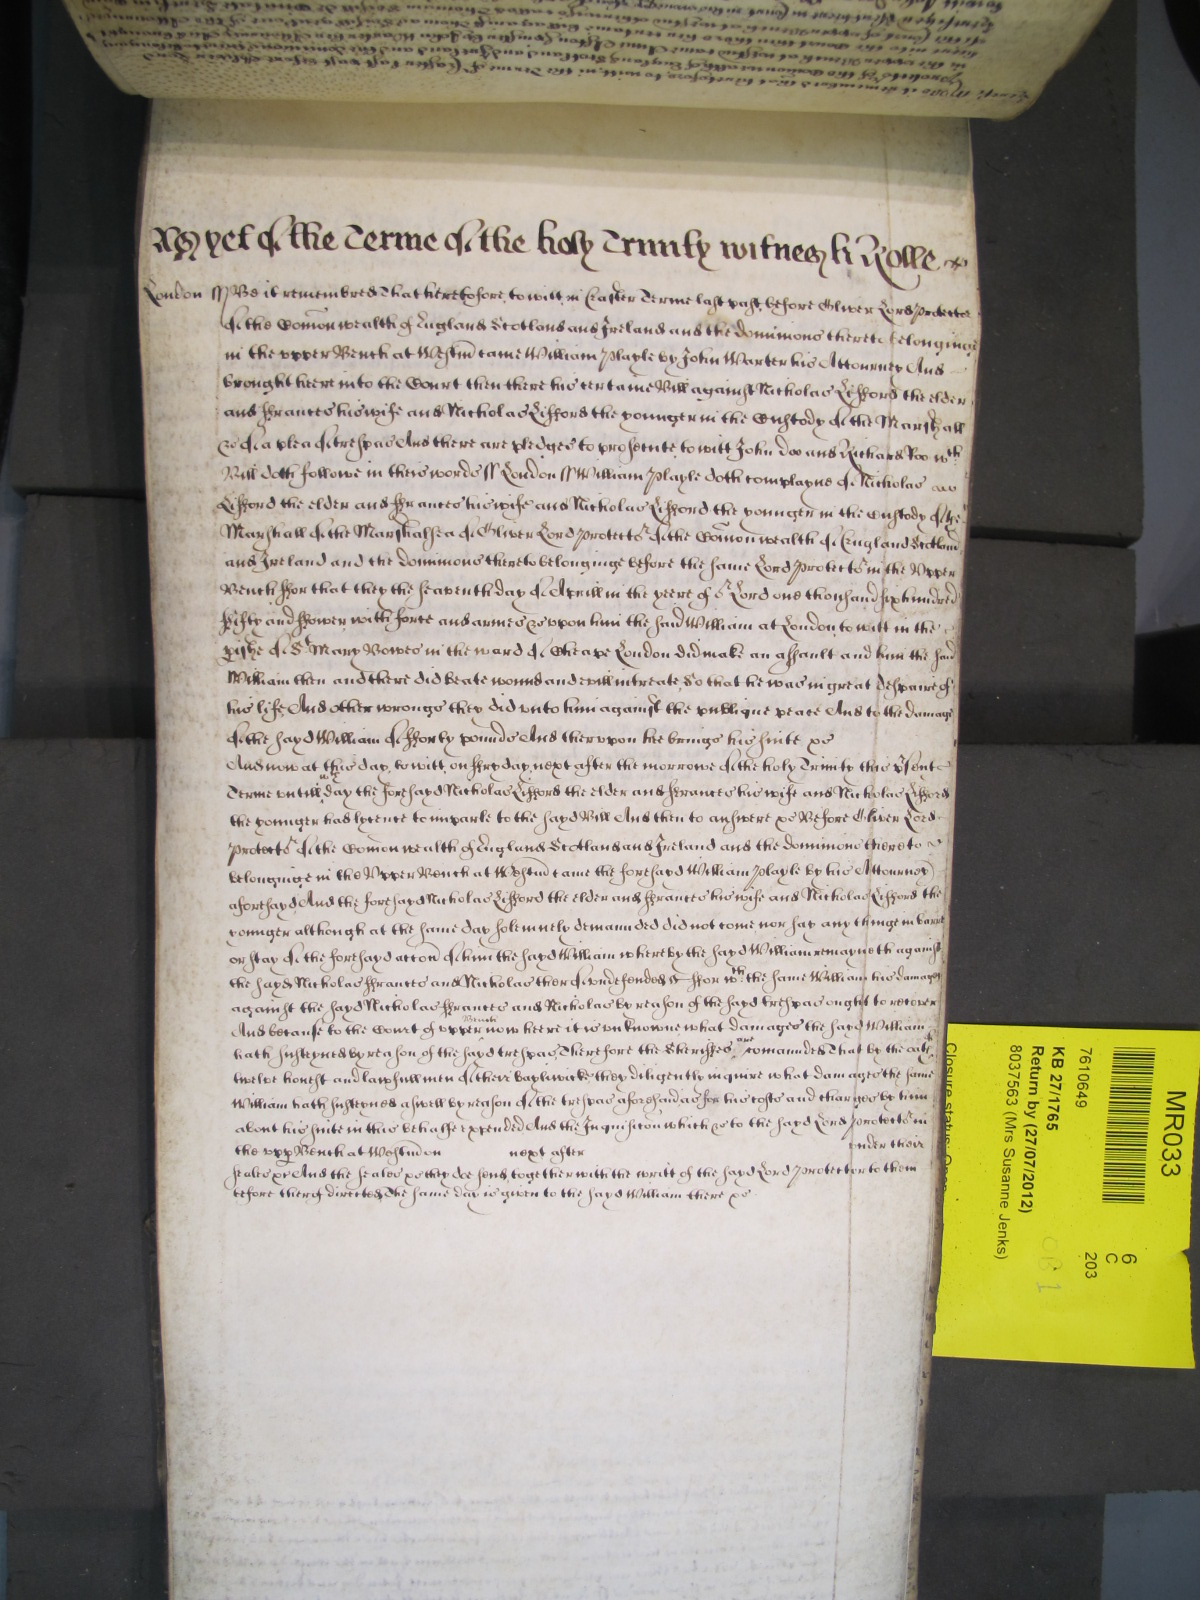 As yet of the Terme of the holy Trinity witnes H Rolle
London ss Be it remembred That heretofore, to witt, in Easter Terme last past, before Oliver Lord Protector
of the Com̄on wealth of England Scotland and Ireland and the dominions thereto belonginge
in the upper Bench at Westm̄ came William Playle by John Warter his Attourney And
brought heere into the Court then there his certaine Bill against Nicholas Lifford the elder
and Frances his wife and Nicholas Lifford the younger in the Custody of the Marshall
&c of a plea of trespas And there are pledges to prosecute, to witt John Doo and Richard Roo wch
Bill doth followe in theis words ss London ss William Playle doth complayne of Nicholas
Lifford the elder and Frances his wife and Nicholas Lifford the younger in the Custody of the
Marshall of the Marshalsea of Oliver Lord Protectr of the Com̄on wealth of England Scotland
and Ireland and the dominions thereto belonginge before the same Lord Protectr in the Upper
Bench For that they the seaventh day of Aprill in the yeere of or Lord one thousand six hundred
Fifty and Fower with force and armes &c upon him the said William at London, to witt in the
pishe of St Mary Bowes in the ward of Cheape London did make an assault and him the said
William then and there did beate wound and evill intreate, So that he was in great despaire of
his life And other wrongs they did unto him against the publique peace And to the damage
of the sayd William of Forty pounds And thereupon hee brings his suite &c
And now at this day, to witt, on Fryday next after the morrowe of the holy Trinity this psent
Terme untill wch day the foresayd Nicholas Lifford the elder and Frances his wife and Nicholas Lifford
the younger had lycence to imparle to the sayd Bill And then to answere &c Before Oliver Lord
Protectr of the Com̄on wealth of England Scotland and Ireland and the dominions thereto
belonginge in the Upper Bench at Westm̄ came the foresayd William Playle by his Attourney
aforesayd And the foresayd Nicholas Lifford the elder and Frances his wife and Nicholas Lifford the
younger although at the same day solemnely demannded did not come nor say any thinge in barre
or stay of the foresayd accon̄ of him the sayd William whereby the sayd William remayneth against
the sayd Nicholas Frances and Nicholas therof undefended For wch the same William his damages
against the sayd Nicholas Frances and Nicholas by reason of the sayd trespas ought to recover
And because to the Court of upper Bench now heere it is unknowne what damages the sayd William
hath susteyned by reason of the sayd trespas, Therefore the Sheriffes are comaunded That by the oath of
twelve honest and lawfull men of their baylywicke they diligently inquire what damages the same
William hath susteyned aswell by reason of the trespas aforesaid as for his costs and charges by him
about his suite in this behalfe expended And the Inquisicon which &c to the sayd Lord Protectr in
the upp Bench at Westm̄ on next after under their
seales &c And the seales &c they doe send together with the writt of the sayd Lord Protector to them
before therof directed, The same day is given to the sayd William there &c
MR033
7610649
6
C
203
KB 27/1765
Return by (27/07/2012)
8037563 (Mrs Susanne Jenks)
Closure status: Open